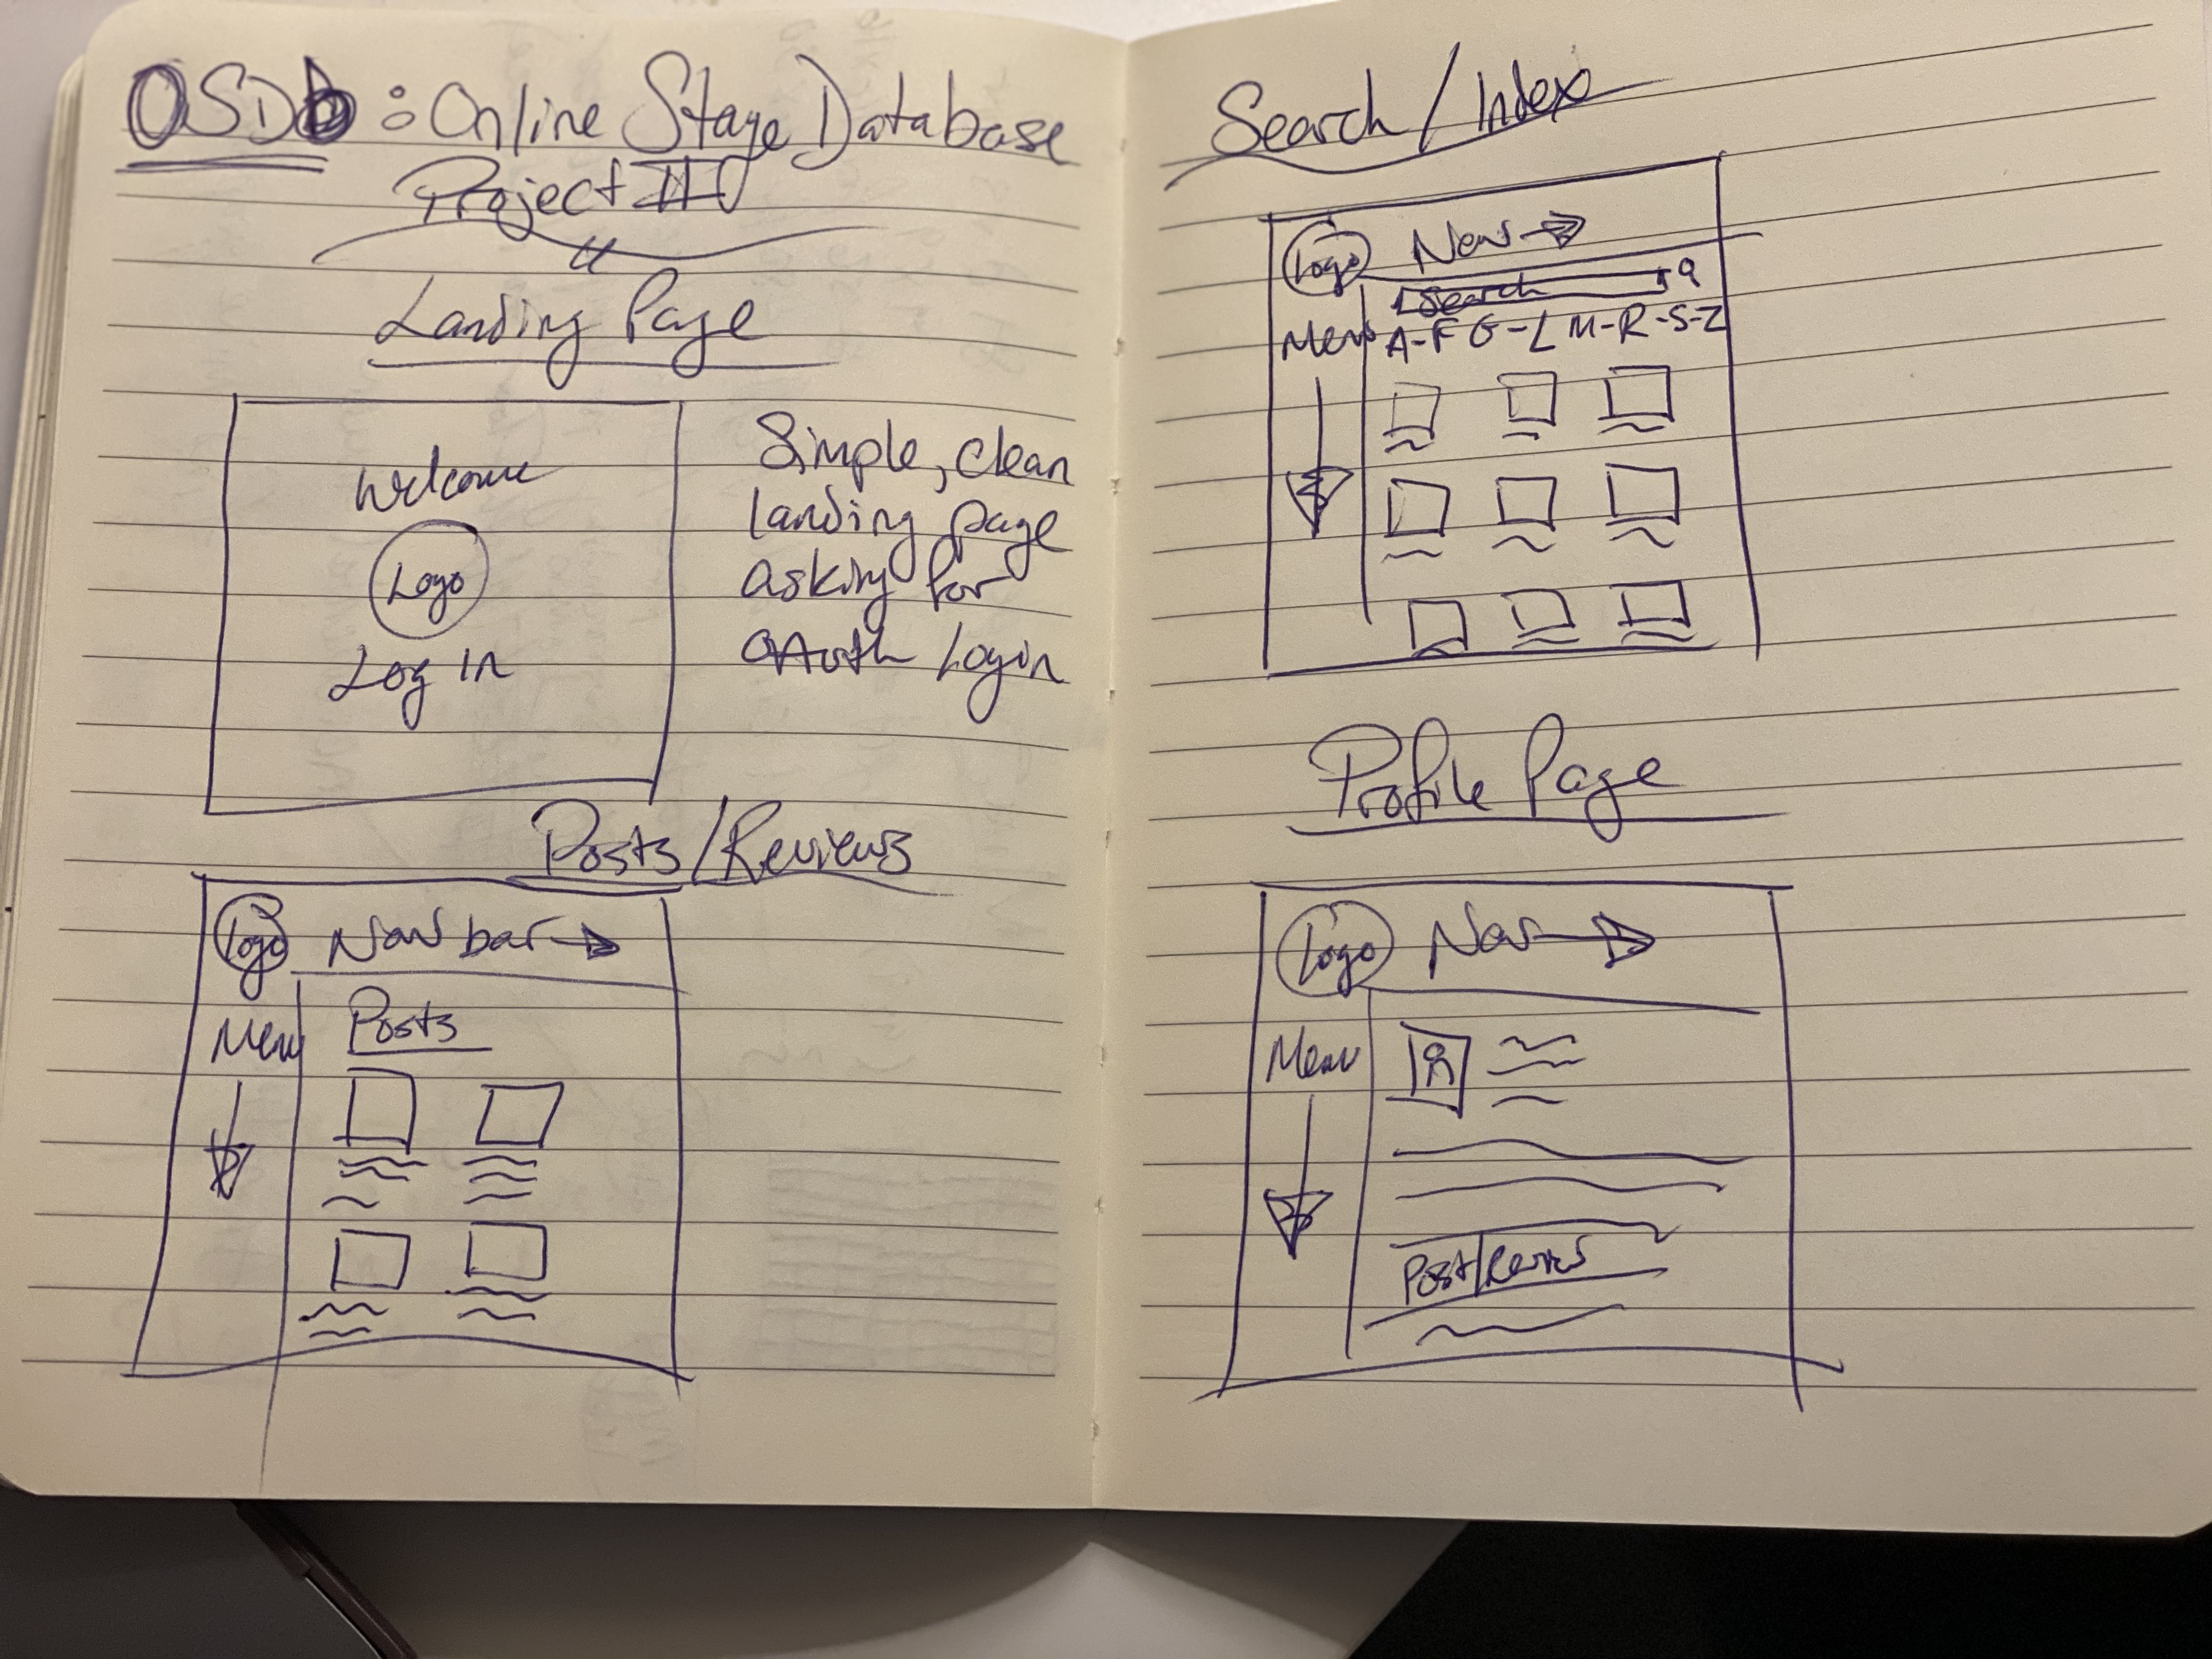 OSDb : Online Stage Database
Project III
Landing Page
Welcome
Logo
Log in
Simple, clean
landing page
asking for
OAuth Login
Posts/Reviews
Logo Nav bar
Menu Posts
Search / Index
Logo Nav
Search
Menu A-F G-L M-R-S-Z
Profile Page
Logo Nav
Menu
Post/Reviews